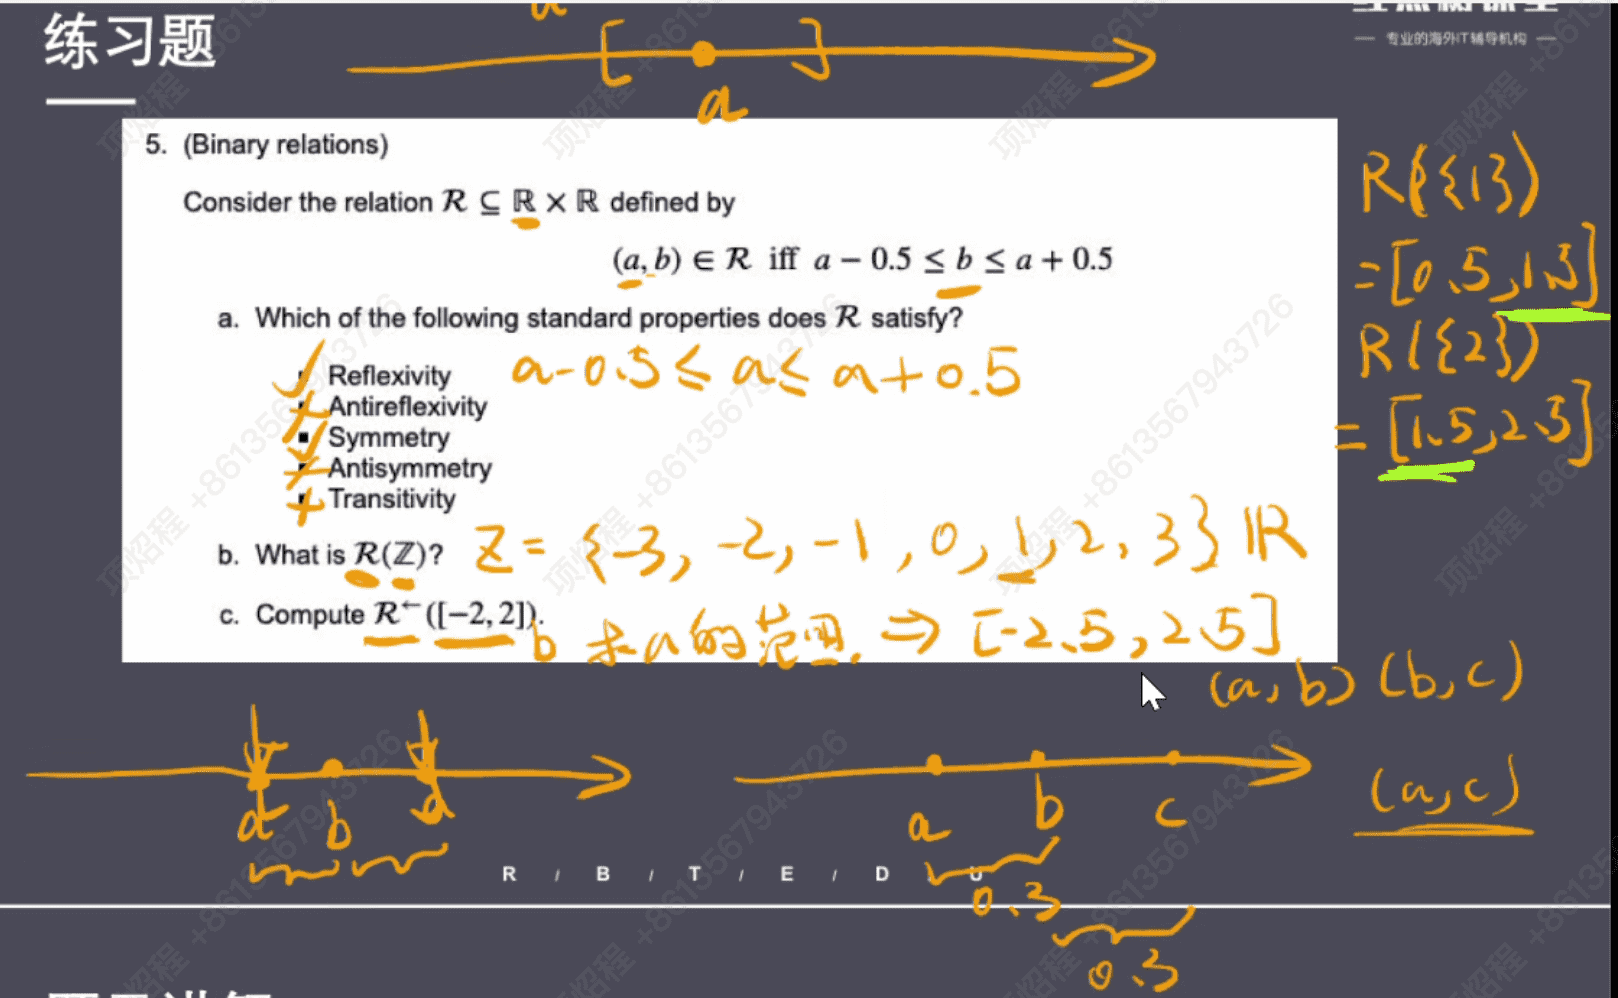 练习题
— 专业的海外IT辅导机构 —
a
5. (Binary relations)
Consider the relation R ⊆ ℝ × ℝ defined by
(a, b) ∈ R iff a − 0.5 ≤ b ≤ a + 0.5
a. Which of the following standard properties does R satisfy?
Reflexivity a-0.5 ≤ a ≤ a+0.5
Antireflexivity
Symmetry
Antisymmetry
Transitivity
b. What is R(ℤ)? Z = {-3, -2, -1, 0, 1, 2, 3} ℝ
c. Compute R←([−2, 2]). b 求a的范围. ⇒ [-2.5, 2.5]
R({1})
= [0.5, 1.5]
R({2})
= [1.5, 2.5]
(a, b) (b, c)
(a, c)
a b a
a b c
R / B / T / E / D / U
0.3
0.3
项焰程 +8613567943726